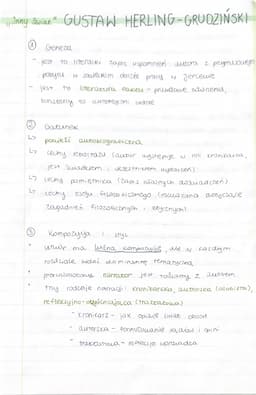 „Inny świat" GUSTAW HERLING-GRUDZIŃSKI
① Geneza
- jest to literacki zapis wspomnień autora z przymusowego
pobytu w sowieckim obozie pracy w Jercewie
- jest to literatura faktu - prawdziwe zdarzenia,
② Gatunek
↳ powieść autobiograficzna
↳ cechy reportażu (autor występuje w roli kronikarza,
jest świadkiem i uczestnikiem wydarzeń)
↳ cechy pamiętnika (zapis własnych doświadczeń)
↳ cechy eseju filozoficznego (rozważania dotyczące
zagadnień filozoficznych i etycznych)
③ Kompozycja i styl
• utwór ma luźną kompozycję, ale w każdym
rozdziale widać dominantę tematyczną
• pierwszoosobowy narrator jest tożsamy z autorem
• trzy rodzaje narracji: kronikarska, autorska (oceniająca),
refleksyjno-uogólniająca (traktatowa)
* kronikarz - jak opisuje świat, obozu
* autorska - formułowanie sądów i opinii
* traktatowa - refleksje narratora